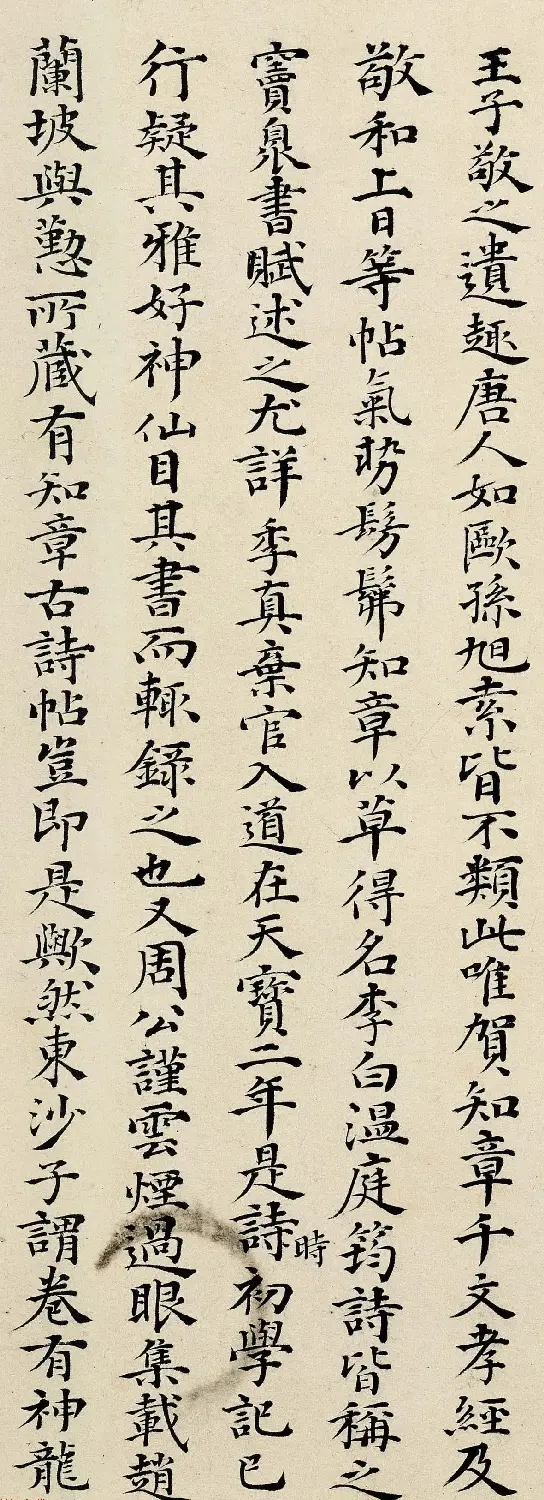 王子敬之遺趣唐人如歐孫旭素皆不類此唯賀知章千文孝經及
敬和上日等帖氣勢髣髴知章以草得名李白溫庭筠詩皆稱之
竇臮書賦述之尤詳季真棄官入道在天寶二年是詩時初學記已
行疑其雅好神仙目其書而輒錄之也又周公謹雲煙過眼集載趙
蘭坡與懃所藏有知章古詩帖豈即是歟然東沙子謂卷有神龍